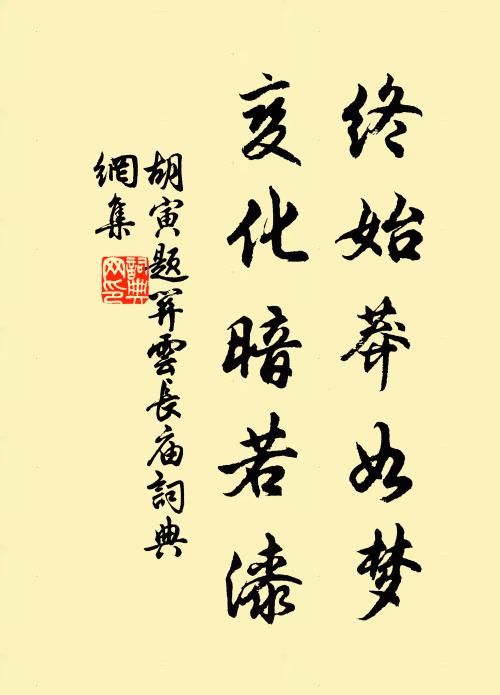 终始莽如梦
变化暗若漆
胡寅题关云长庙詞典
網集
詞典
网印